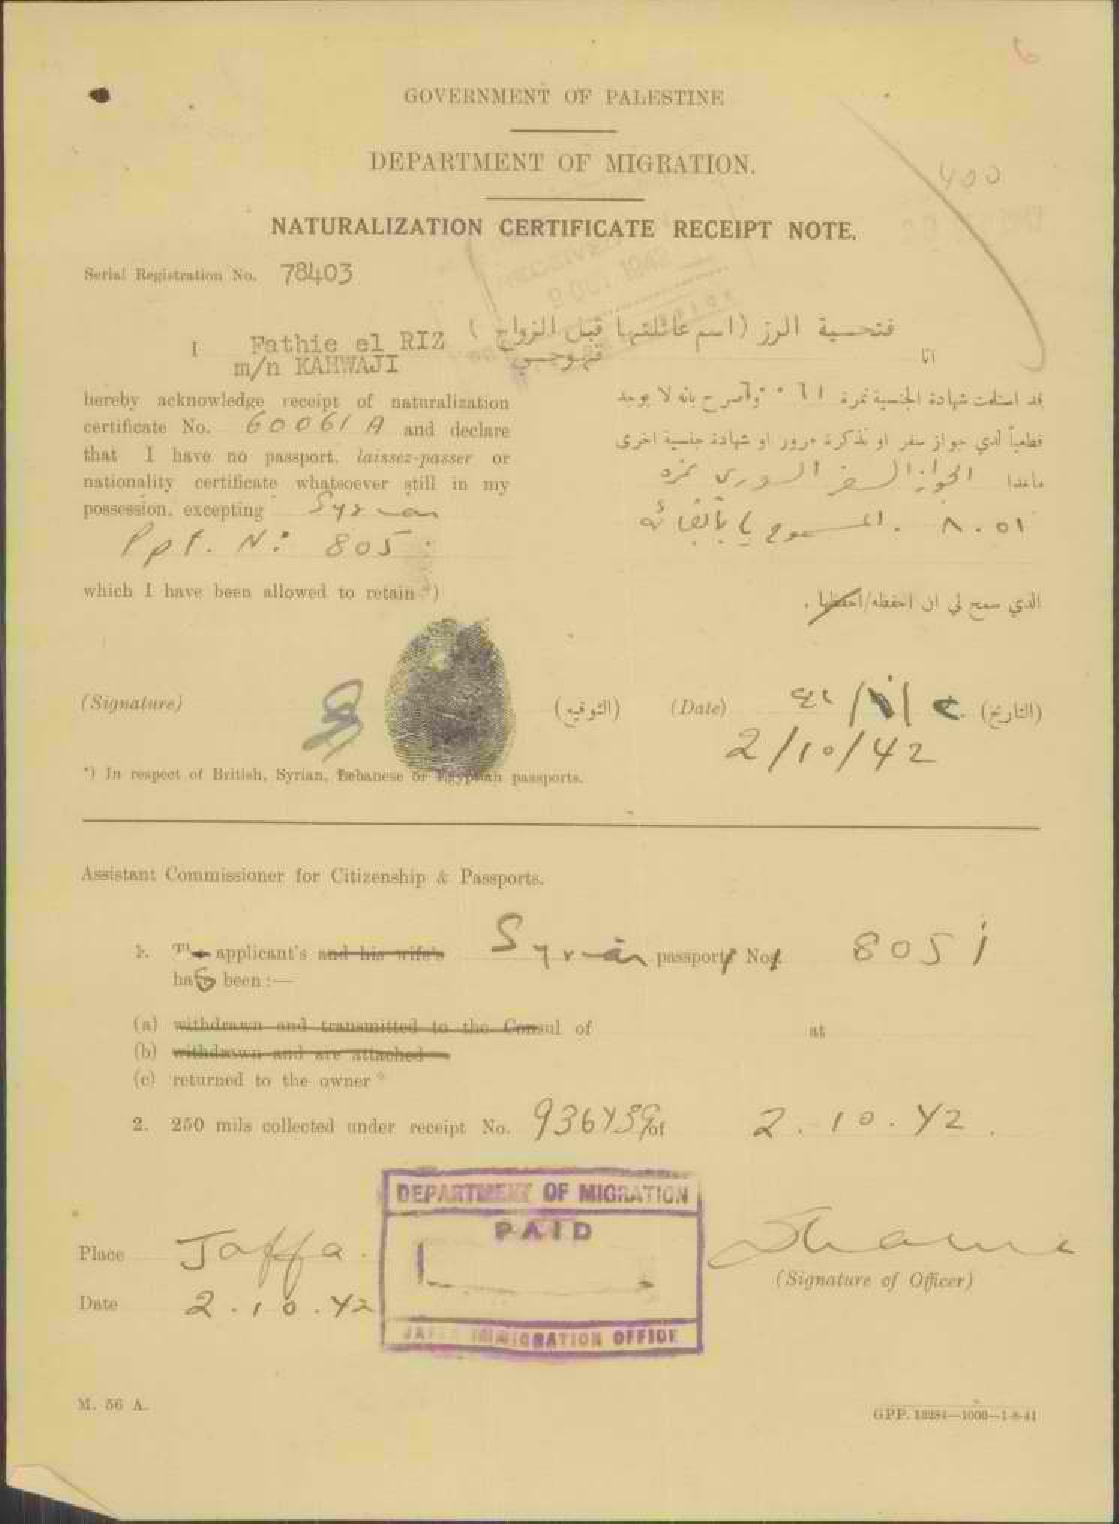 6
GOVERNMENT OF PALESTINE
DEPARTMENT OF MIGRATION.
400
NATURALIZATION CERTIFICATE RECEIPT NOTE.
Serial Registration No. 78403
RECEIVED
9 OCT 1942
I Fathie el RIZ
m/n KAHWAJI
انا فتحية الرز (اسم عائلتها قبل الزواج )
قهوجي
hereby acknowledge receipt of naturalization
certificate No. 60061 A and declare
that I have no passport, laissez-passer or
nationality certificate whatsoever still in my
possession, excepting Syrian
Ppt. No: 805
which I have been allowed to retain *)
قد استلمت شهادة الجنسية نمرة واصرح بانه لا يوجد
قطعياً لدي جواز سفر او تذكرة مرور او شهادة جنسية اخرى
ماعدا الجواز السفر السوري نمره
٨٠٥١ المسموح بإبقائه
الذي سمح لي ان احفظه/احفظها .
(Signature) (التوقيع) (Date) (التاريخ)
2/10/42
*) In respect of British, Syrian, Lebanese or Egyptian passports.
Assistant Commissioner for Citizenship & Passports.
1. The applicant's and his wife's Syrian passport No. 8051
has been :—
(a) withdrawn and transmitted to the Consul of at
(b) withdrawn and are attached
(c) returned to the owner *
2. 250 mils collected under receipt No. 936439 of 2.10.42.
DEPARTMENT OF MIGRATION
PAID
JAFFA IMMIGRATION OFFICE
Place Jaffa.
(Signature of Officer)
Date 2.10.42
M. 56 A.
GPP. 13284—1000—1-8-41